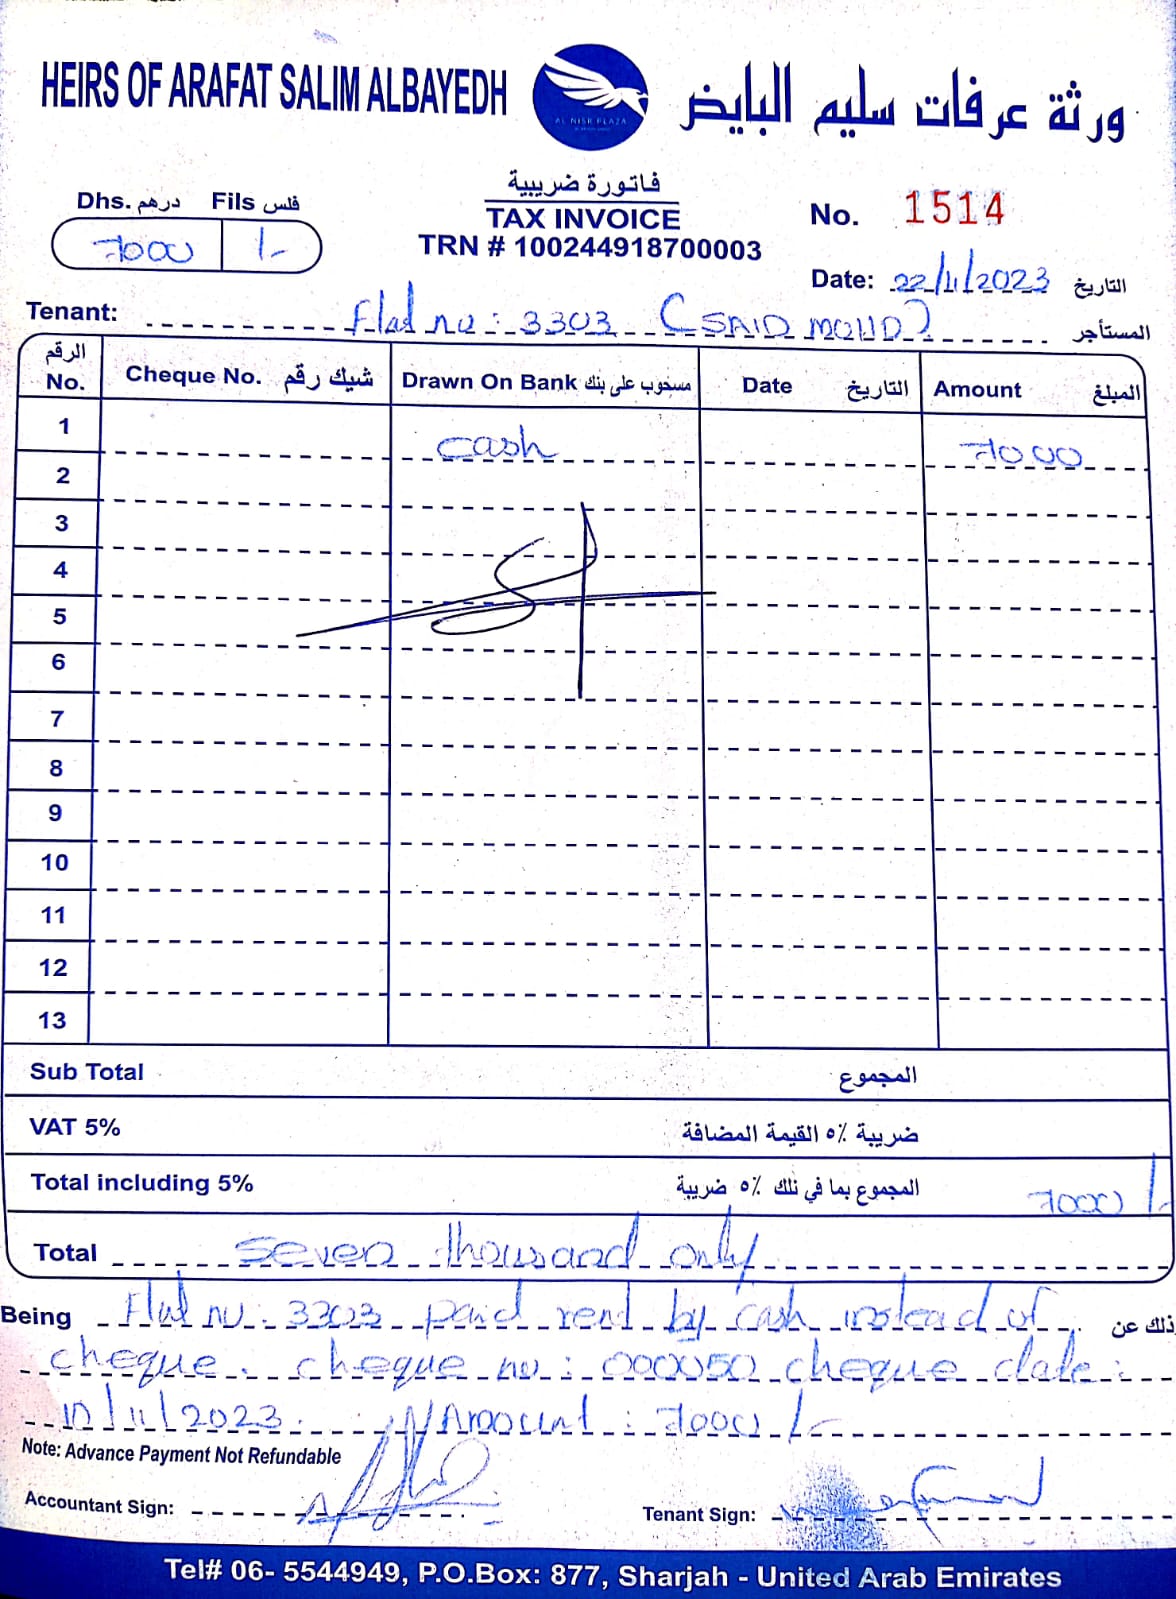 HEIRS OF ARAFAT SALIM ALBAYEDH
ورثة عرفات سليم البايض
AL NISR PLAZA
فاتورة ضريبية
TAX INVOICE
TRN # 100244918700003
Dhs. درهم Fils فلس
7000 /-
No. 1514
Date: 22/11/2023 التاريخ
Tenant: Flat no: 3303 (SAID MOHD) المستأجر
الرقم No. Cheque No. شيك رقم Drawn On Bank مسحوب على بنك Date التاريخ Amount المبلغ
1 cash 7000
2
3
4
5
6
7
8
9
10
11
12
13
Sub Total المجموع
VAT 5% ضريبة ٥٪ القيمة المضافة
Total including 5% المجموع بما في ذلك ٥٪ ضريبة 7000/-
Total seven thousand only
Being Flat no: 3303 paid rent by cash instead of ذلك عن
cheque. cheque no: 000050 cheque date:
10/11/2023. Amount: 7000/-
Note: Advance Payment Not Refundable
Accountant Sign:
Tenant Sign:
Tel# 06- 5544949, P.O.Box: 877, Sharjah - United Arab Emirates